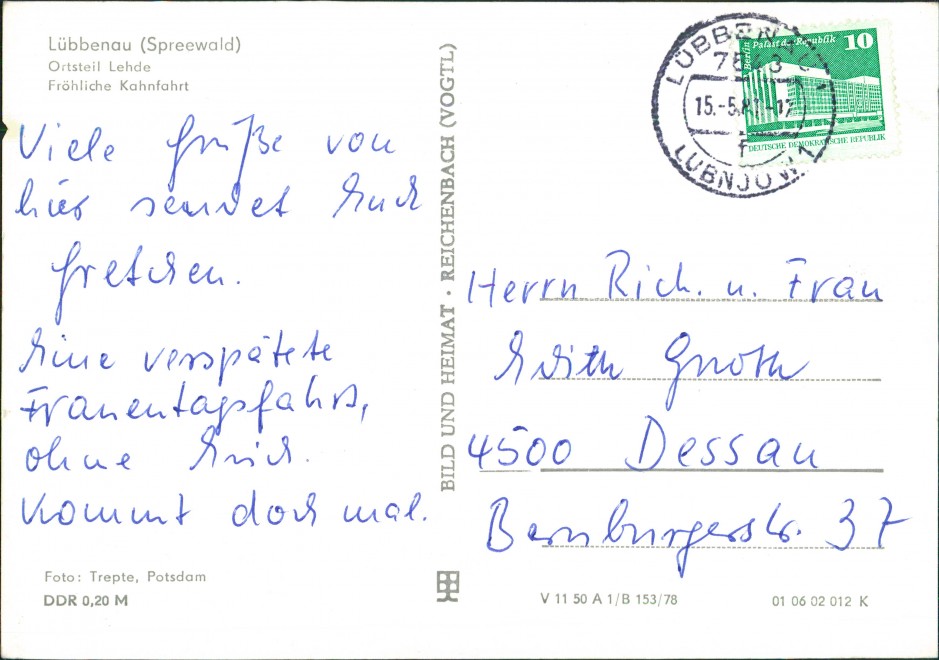 Lübbenau (Spreewald)
Ortsteil Lehde
Fröhliche Kahnfahrt
Viele Grüße von
hier sendet Euch
Gretchen.
Eine verspätete
Frauentagsfahrt,
ohne Euch.
Kommt doch mal.
Foto: Trepte, Potsdam
DDR 0,20 M
BILD UND HEIMAT · REICHENBACH (VOGTL)
LÜBBENAU 1
7543
15.-5.81-17
f
LUBNJOW 1
Berlin Palast der Republik 10
DEUTSCHE DEMOKRATISCHE REPUBLIK
Herrn Rich. u. Frau
Edith Gnoth
4500 Dessau
Bernburgerstr. 37
V 11 50 A 1/B 153/78
01 06 02 012 K